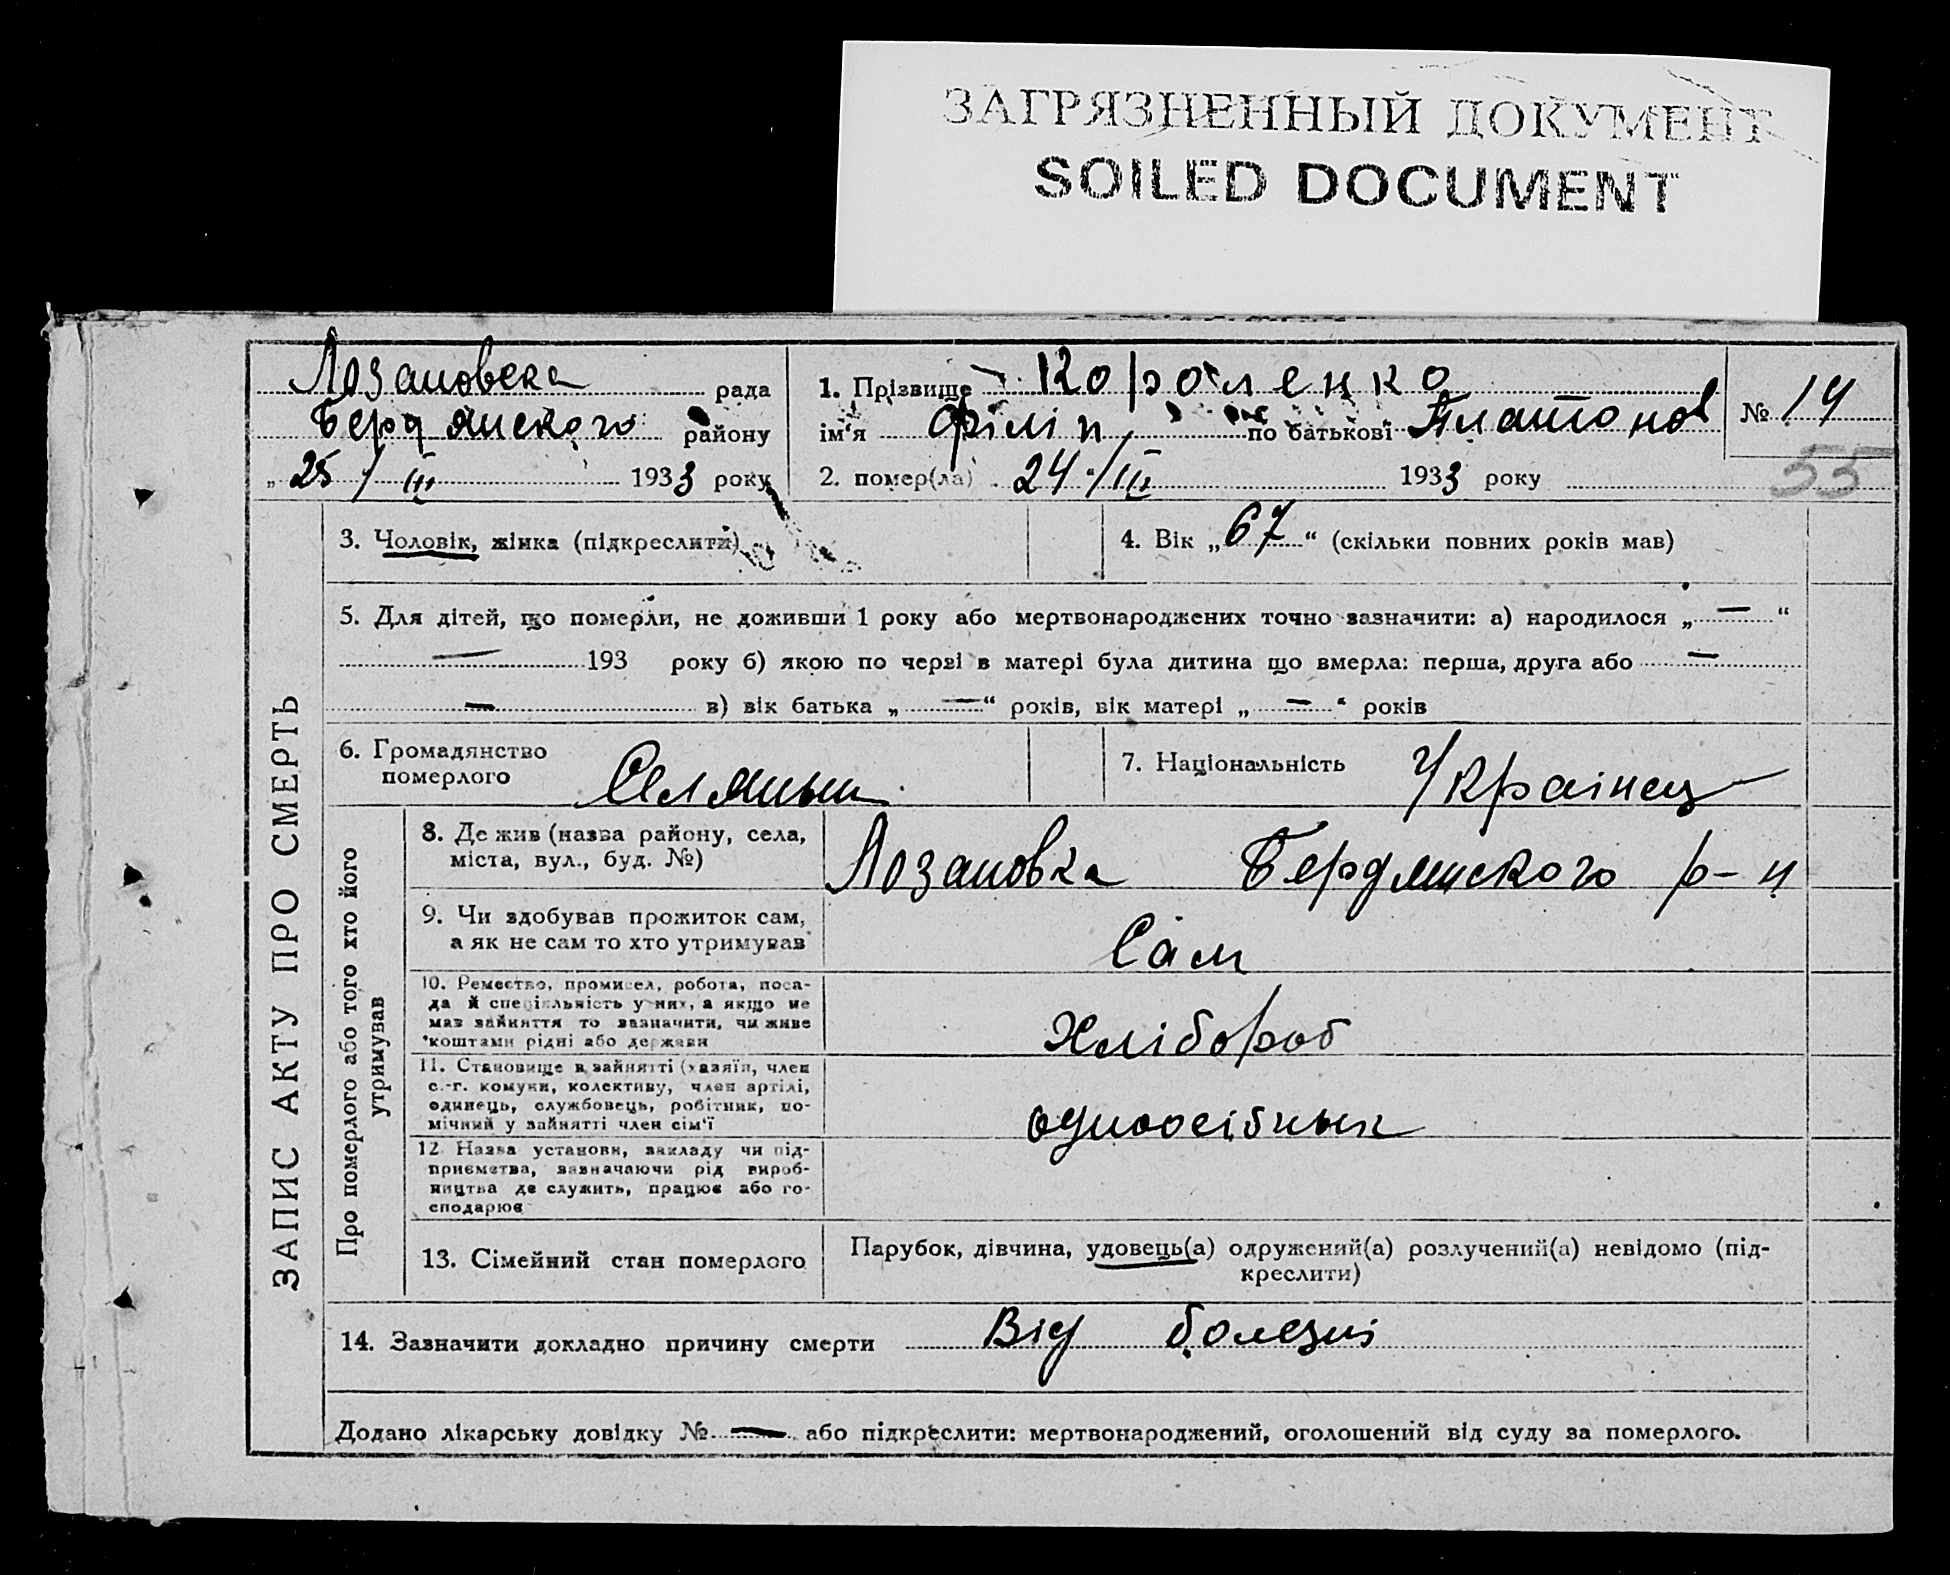 ЗАГРЯЗНЕННЫЙ ДОКУМЕНТ
SOILED DOCUMENT
Лозановска рада
Бердянского району
„ 25 / III 1933 року
1. Прізвище Короленко
ім‘я Філіп по батькові Платонов
2. помер(ла) 24 / III 1933 року
№ 14
55
3. Чоловік, жінка (підкреслити)
4. Вік „ 67 “ (скільки повних років мав)
5. Для дітей, що померли, не доживши 1 року або мертвонароджених точно зазначити: а) народилося „ — “
— 193 року б) якою по черзі в матері була дитина що вмерла: перша, друга або —
— в) вік батька „ — “ років, вік матері „ — “ років
6. Громадянство
померлого Селяных
7. Національність Українец
ЗАПИС АКТУ ПРО СМЕРТЬ
Про померлого або того хто його
утримував
8. Де жив (назва району, села,
міста, вул., буд. №)
Лозановка Бердянского р-н
9. Чи здобував прожиток сам,
а як не сам то хто утримував
Сам
10. Ремество, промисел, робота, поса-
да й спеціяльність у них, а якщо не
мав зайняття то зазначити, чи живе
коштами рідні або держави
Хлібороб
11. Становище в зайнятті (хазяїн, член
с.-г. комуни, колективу, член артілі,
одинець, службовець, робітник, по-
мічний у зайнятті член сім‘ї
одноосібнык
12. Назва установи, закладу чи під-
приємства, зазначаючи рід вироб-
ництва де служить, працює або го-
сподарює
13. Сімейний стан померлого
Парубок, дівчина, удовець(а) одружений(а) розлучений(а) невідомо (під-
креслити)
14. Зазначити докладно причину смерти Від болезні
Додано лікарську довідку № — або підкреслити: мертвонароджений, оголошений від суду за померлого.